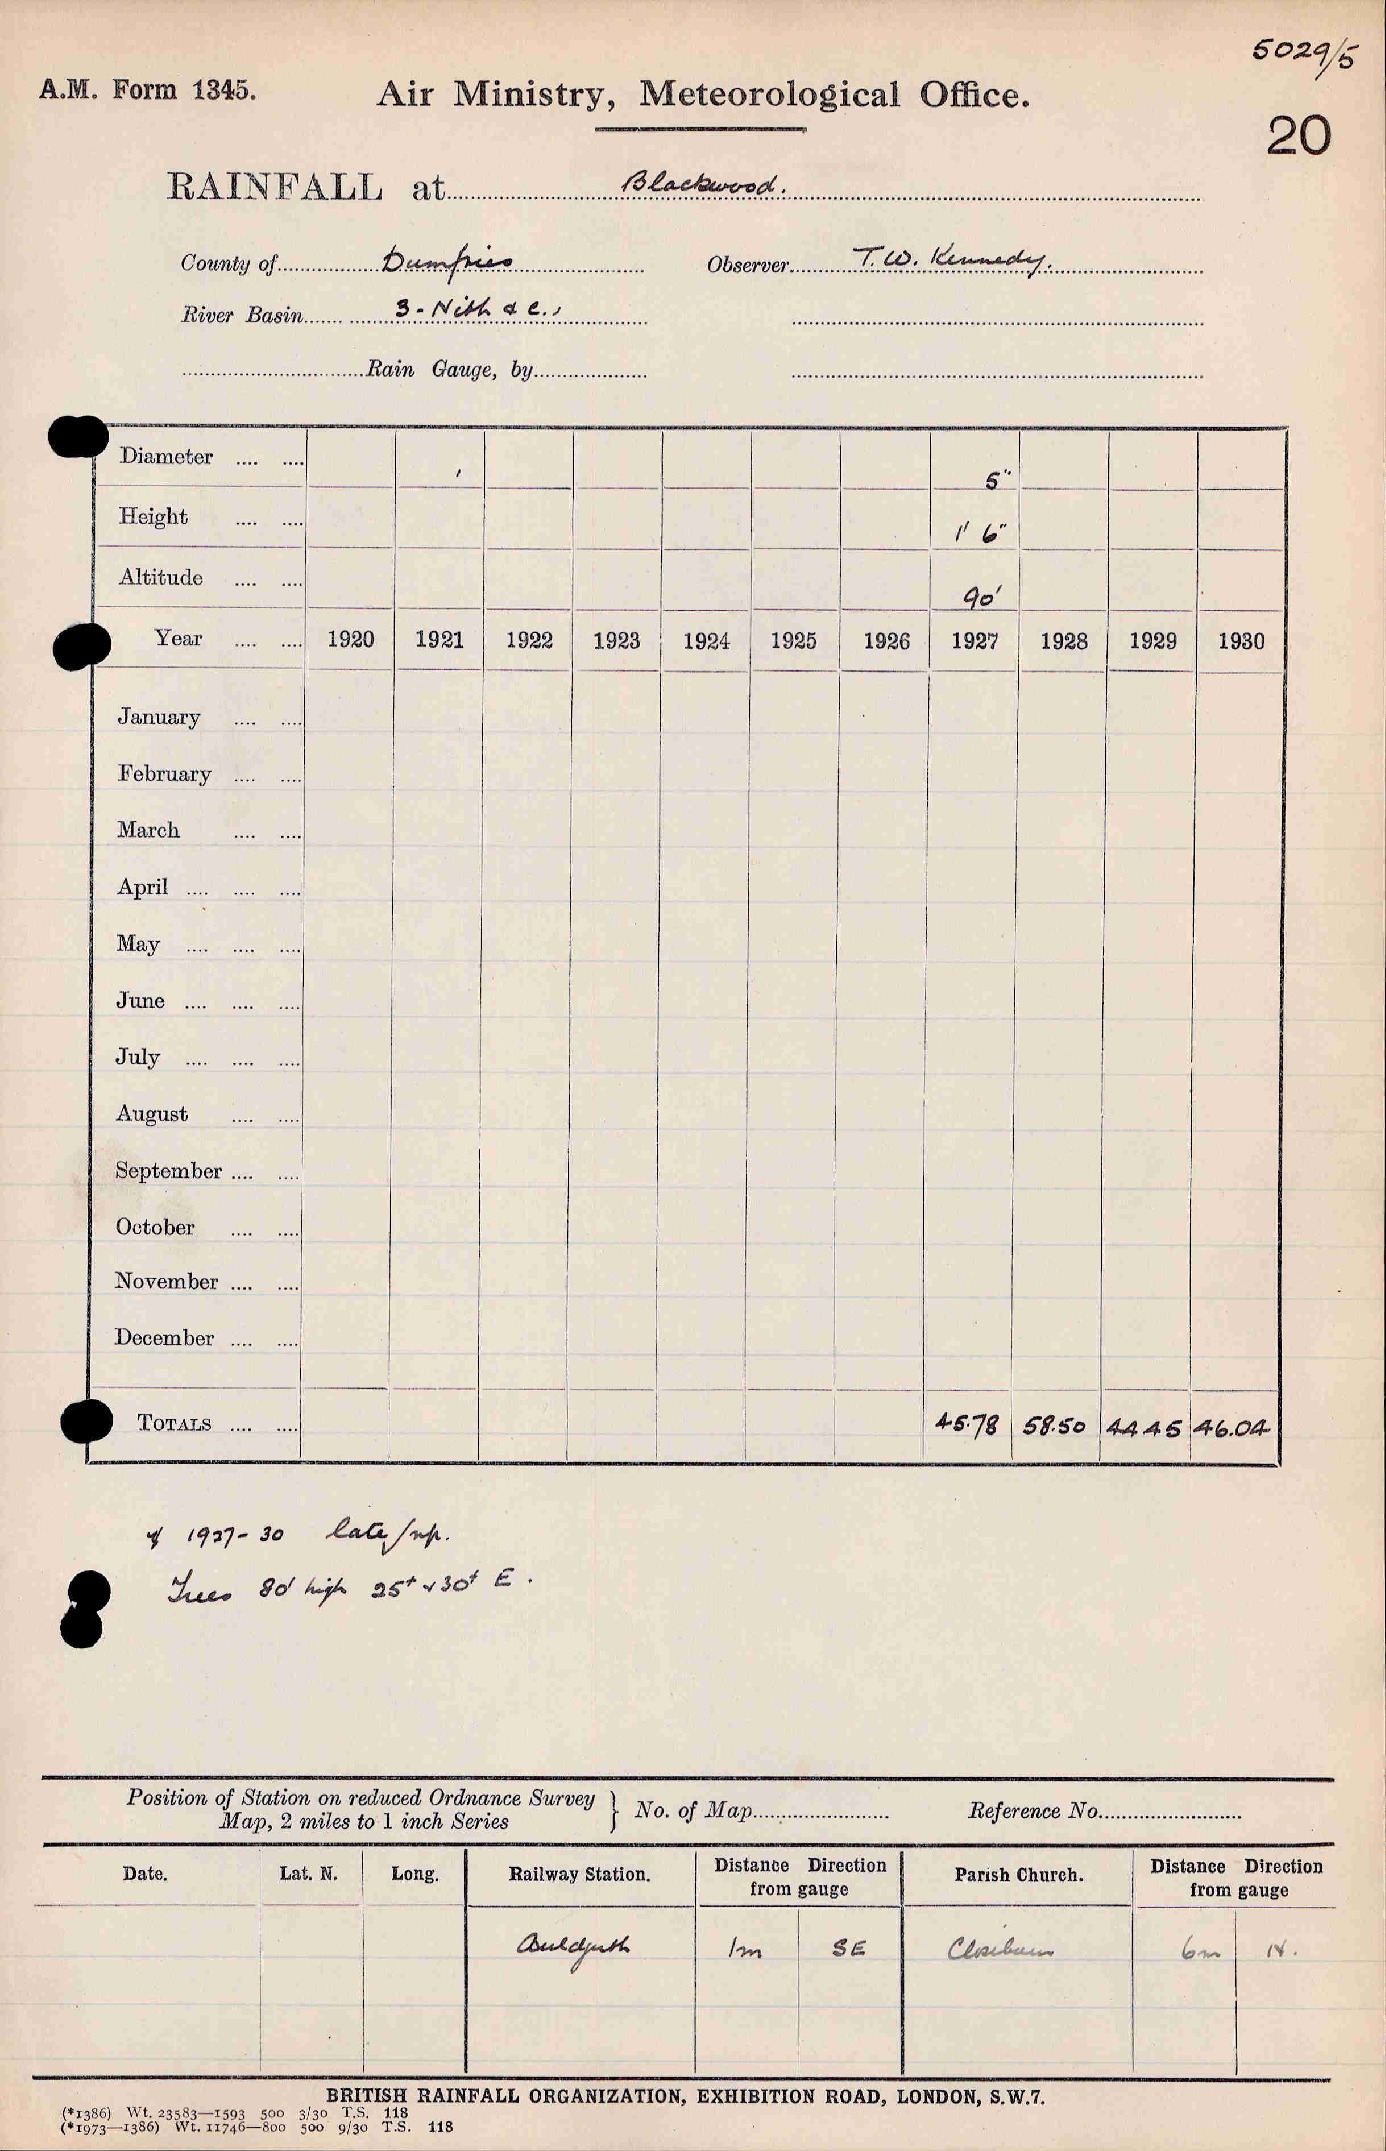 5029/5
A.M. Form 1345. Air Ministry, Meteorological Office.
20
RAINFALL at Blackwood.
County of Dumfries Observer T.W. Kennedy.
River Basin 3 - Nith & c.,
Rain Gauge, by
Diameter .... .... 5"
Height .... .... 1' 6"
Altitude .... .... 90'
Year .... .... 1920 1921 1922 1923 1924 1925 1926 1927 1928 1929 1930
January .... ....
February .... ....
March .... ....
April .... .... ....
May .... .... ....
June .... .... ....
July .... .... ....
August .... ....
September .... ....
October .... ....
November .... ....
December .... ....
TOTALS .... .... 45.78 58.50 44.45 46.04
1927-30 late
Trees 80' high 25+ 30+ E.
Position of Station on reduced Ordnance Survey
Map, 2 miles to 1 inch Series } No. of Map Reference No.
Date. Lat. N. Long. Railway Station. Distance Direction from gauge Parish Church. Distance Direction from gauge
Auldgirth 1m SE Closeburn 6m N.
BRITISH RAINFALL ORGANIZATION, EXHIBITION ROAD, LONDON, S.W.7.
(*1386) Wt. 23583—1593 500 3/30 T.S. 118
(*1973—1386) Wt. 11746—800 500 9/30 T.S. 118